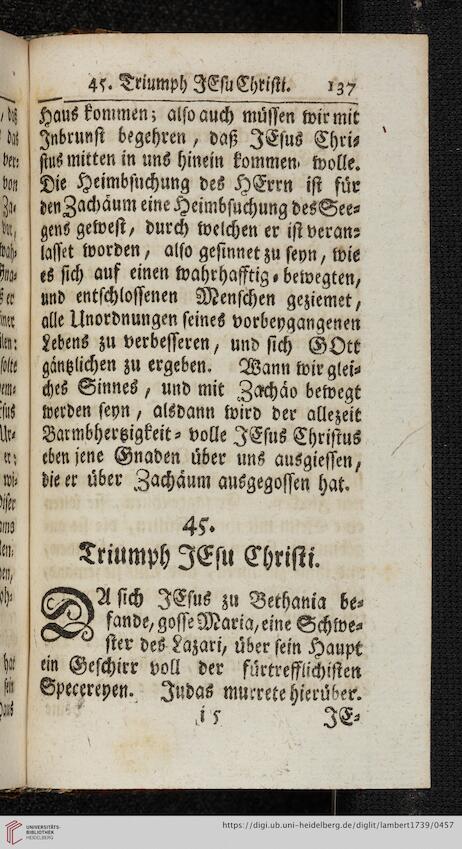 45. Triumph JEsu Christi. 137
Haus kommen; also auch müssen wir mit
Inbrunst begehren, daß JEsus Chri-
stus mitten in uns hinein kommen wolle.
Die Heimbsuchung des HErrn ist für
den Zachäum eine Heimbsuchung des See-
gens gewest, durch welchen er ist veran-
lasset worden, also gesinnet zu seyn, wie
es sich auf einen wahrhafftig-bewegten,
und entschlossenen Menschen geziemet,
alle Unordnungen seines vorbeygangenen
Lebens zu verbesseren, und sich GOtt
gäntzlichen zu ergeben. Wann wir glei-
ches Sinnes, und mit Zachäo bewegt
werden seyn, alsdann wird der allezeit
Barmbhertzigkeit-volle JEsus Christus
eben jene Gnaden über uns ausgiessen,
die er über Zachäum ausgegossen hat.
45.
Triumph JEsu Christi.
DA sich JEsus zu Bethania be-
fande, gosse Maria, eine Schwe-
ster des Lazari, über sein Haupt
ein Geschirr voll der fürtrefflichisten
Specereyen. Judas murrete hierüber.
i 5 JE-
UNIVERSITÄTS-
BIBLIOTHEK
HEIDELBERG
https://digi.ub.uni-heidelberg.de/diglit/lambert1739/0457